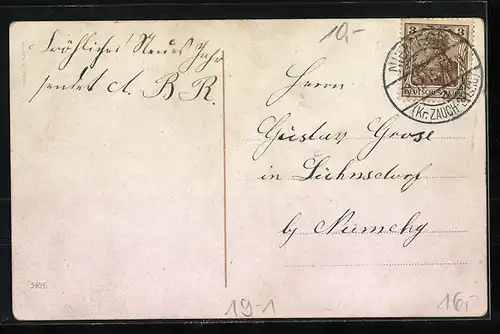 Fröhliches Neues Jahr
sendet A. B R.
10,-
3 3
DEUTSCHES REICH
(Kr. ZAUCH-BELZIG)
Herrn
Gustav Grose
in Lühnsdorf
by Niemegk
5405.
19-1
16,-